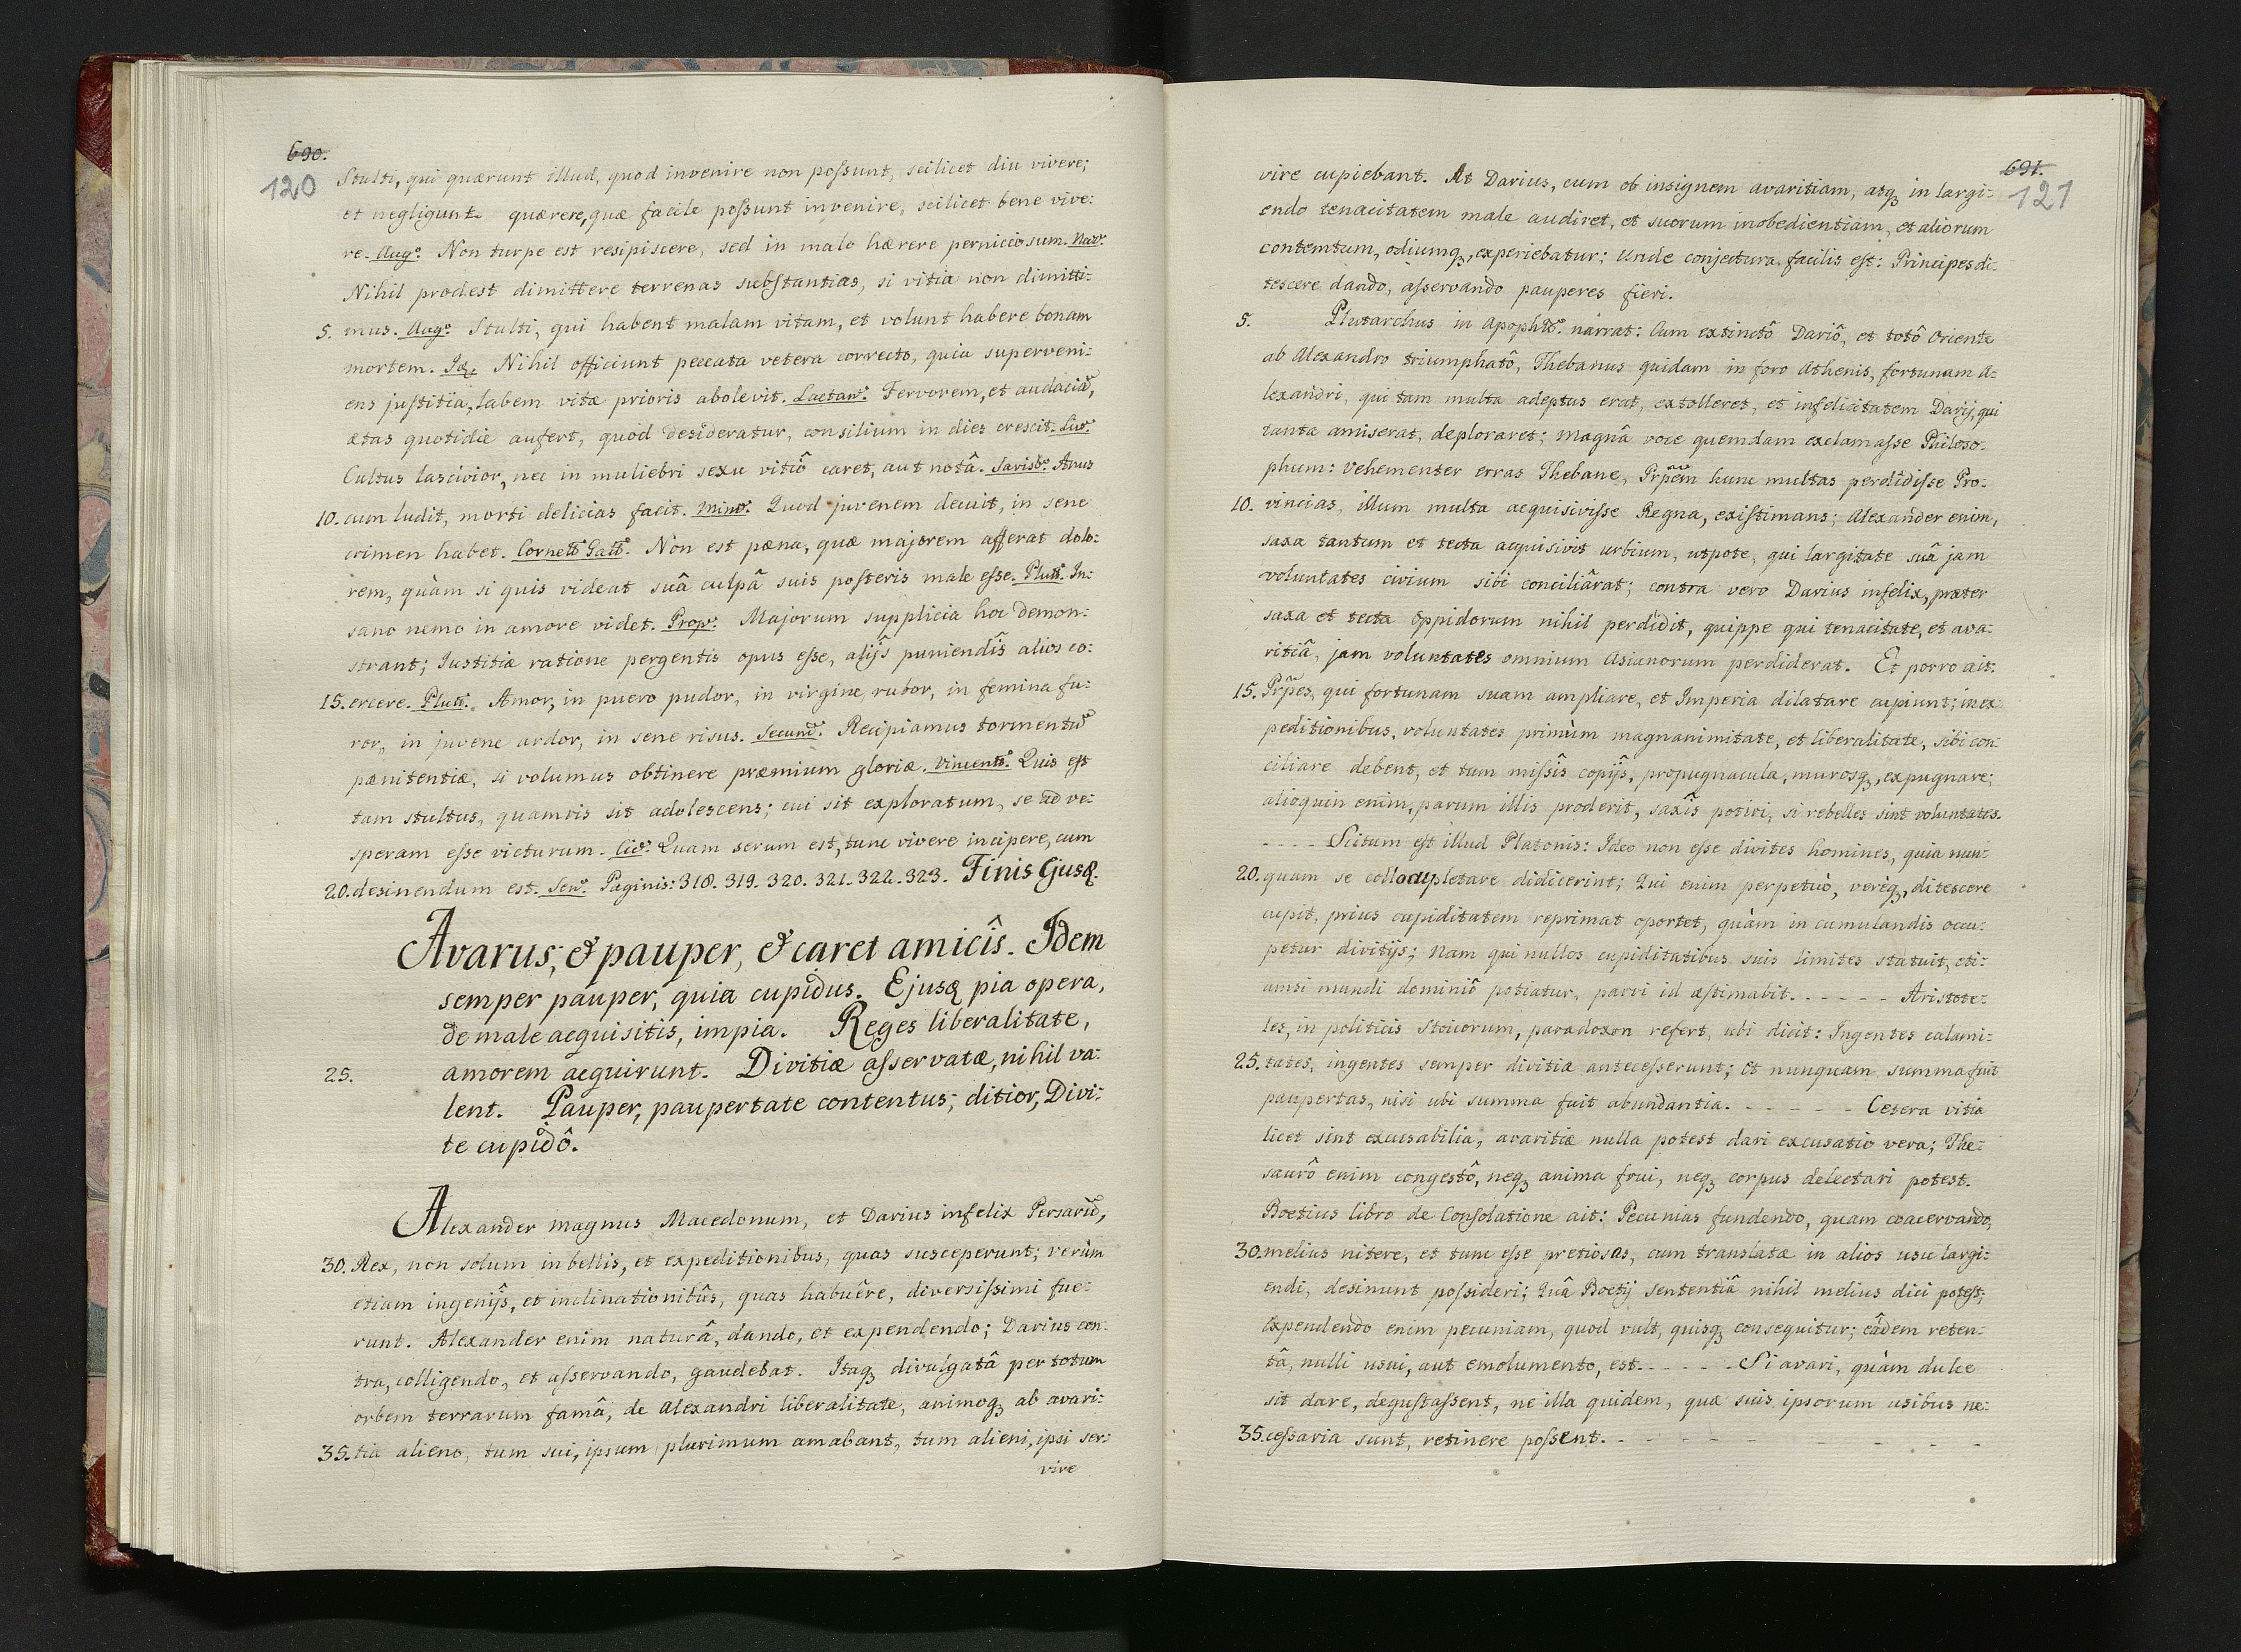 690.
120
Stulti, qui quærunt illud, quod invenire non possunt, scilicet diu vivere;
et negligunt quærere, quæ facile possunt invenire, scilicet bene vive:
re. Aug⁹. Non turpe est resipiscere, sed in malo hærere perniciosum. Naz⁹.
Nihil prodest dimittere terrenas substantias, si vitia non dimitti:
5. mus. Aug⁹. Stulti, qui habent malam vitam, et volunt habere bonam
mortem. Id. Nihil officiunt peccata vetera correcto, quia superveni:
ens justitia, labem vitæ prioris abolevit. Lactan⁹. Fervorem, et audaciã,
ætas quotidie aufert, quod desideratur, consilium in dies crescit. Liv⁹.
Cultus lascivior, nec in muliebri sexu vitiô caret, aut notâ. Sarisb⁹. Anus
10. cum ludit, morti delicias facit. Mim⁹. Quod juvenem decuit, in sene
crimen habet. Cornel⁹ Gall⁹. Non est pæna, quæ majorem afferat dolo:
rem, quàm si quis videat suâ culpâ suis posteris male esse. Plut⁹. In:
sano nemo in amore videt. Prop⁹. Majorum supplicia hoc demon:
strant; Iustitiæ ratione pergentis opus esse, alijs puniendîs alios co:
15. ercere. Plut⁹. Amor, in puero pudor, in virgine rubor, in femina fu:
ror, in juvene ardor, in sene risus. Secund⁹. Recipiamus tormentũ
pænitentiæ, si volumus obtinere præmium gloriæ. Vincent⁹. Quis est
tam stultus, quamvis sit adolescens; cui sit exploratum, se ad ve:
speram esse victurum. Cic⁹. Quam serum est, tunc vivere incipere, cum
20. desinendum est. Sen⁹. Paginis: 318. 319. 320. 321. 322. 323. Finis Ejusq̃.
Avarus, & pauper, & caret amicîs. Idem
semper pauper, quia cupidus. Ejusq̃ pia opera,
de male acquisitis, impia. Reges liberalitate,
25. amorem acquirunt. Divitiæ asservatæ, nihil va:
lent. Pauper, paupertate contentus, ditior, Divi:
te cupidô.
Alexander magnus Macedonum, et Darius infelix Persarũ,
30. Rex, non solum in bellis, et expeditionibus, quas susceperunt; verùm
etiam ingenijs, et inclinationibûs, quas habuêre, diversissimi fue:
runt. Alexander enim naturâ, dando, et expendendo; Darius con:
tra, colligendo, et asservando, gaudebat. Itaq₃ divulgatâ per totum
orbem terrarum famâ, de Alexandri liberalitate, animoq₃ ab avari:
35. tia alieno, tum sui, ipsum plurimum amabant, tum alieni, ipsi ser:
vire
691.
121
vire cupiebant. At Darius, cum ob insignem avaritiam, atq₃ in largi:
endo tenacitatem male audiret, et suorum inobedientiam, et aliorum
contemtum, odiumq₃, experiebatur; Unde conjectura facilis est: Principes di:
tescere dando, asservando pauperes fieri.
5. Plutarchus in Apophtĩ⁹. narrat: Cum extinctô Dariô, et totô Oriente
ab Alexandro triumphatô, Thebanus quidam in foro Athenis, fortunam A:
lexandri, qui tam multa adeptus erat, extolleret, et infelicitatem Darij, qui
tanta amiserat, deploraret; magnâ voce quemdam exclamasse Philoso:
phum: Vehementer erras Thebane, Prp̃em hunc multas perdidisse Pro:
10. vincias, illum multa acquisivisse Regna, existimans; Alexander enim,
saxa tantum et tecta acquisivit urbium, utpote, qui largitate suâ jam
voluntates civium sibi conciliârat; contra vero Darius infelix, præter
saxa et tecta Oppidorum nihil perdidit, quippe qui tenacitate, et ava:
ritiâ, jam voluntates omnium Asianorum perdiderat. Et porro ait:
15. Prp̃es, qui fortunam suam ampliare, et Imperia dilatare cupiunt; in ex:
peditionibus, voluntates primùm magnanimitate, et liberalitate, sibi con:
ciliare debent, et tum missîs copijs, propugnacula, murosq₃, expugnare;
alioquin enim, parum illis proderit, saxîs potiri, si rebelles sint voluntates.
- - - - Scitum est illud Platonis: Ideo non esse divites homines, quia nun:
20. quam se collocupletare didicerint; Qui enim perpetuò, verèq₃, ditescere
cupit, prius cupiditatem reprimat oportet, quàm in cumulandis occu:
petur divitijs; Nam qui nullos cupiditatibus suis limites statuit, eti:
amsi mundi dominiô potiatur, parvi id æstimabit. - - - - - Aristote:
les, in politicis Stoicorum, paradoxon refert, ubi dicit: Ingentes calami:
25. tates, ingentes semper divitiæ antecesserunt; Et nunquam summa fuit
paupertas, nisi ubi summa fuit abundantia. - - - - - Cetera vitia
licet sint excusabilia, avaritiæ nulla potest dari excusatio vera; The:
saurô enim congestô, neq₃ anima frui, neq₃ corpus delectari potest.
Boetius libro de Consolatione ait: Pecunias fundendo, quam coacervando,
30. melius nitere, et tunc esse pretiosas, cum translatæ in alios usu largi:
endi, desinunt possideri; Quâ Boetij sententiâ nihil melius dici potest;
Expendendo enim pecuniam, quod vult, quisq₃ consequitur; eâdem reten:
tâ, nulli usui, aut emolumento, est. - - - - - Si avari, quàm dulce
sit dare, degustassent, ne illa quidem, quæ suis ipsorum usibus ne:
35. cessaria sunt, retinere possent. - - - - - - - -